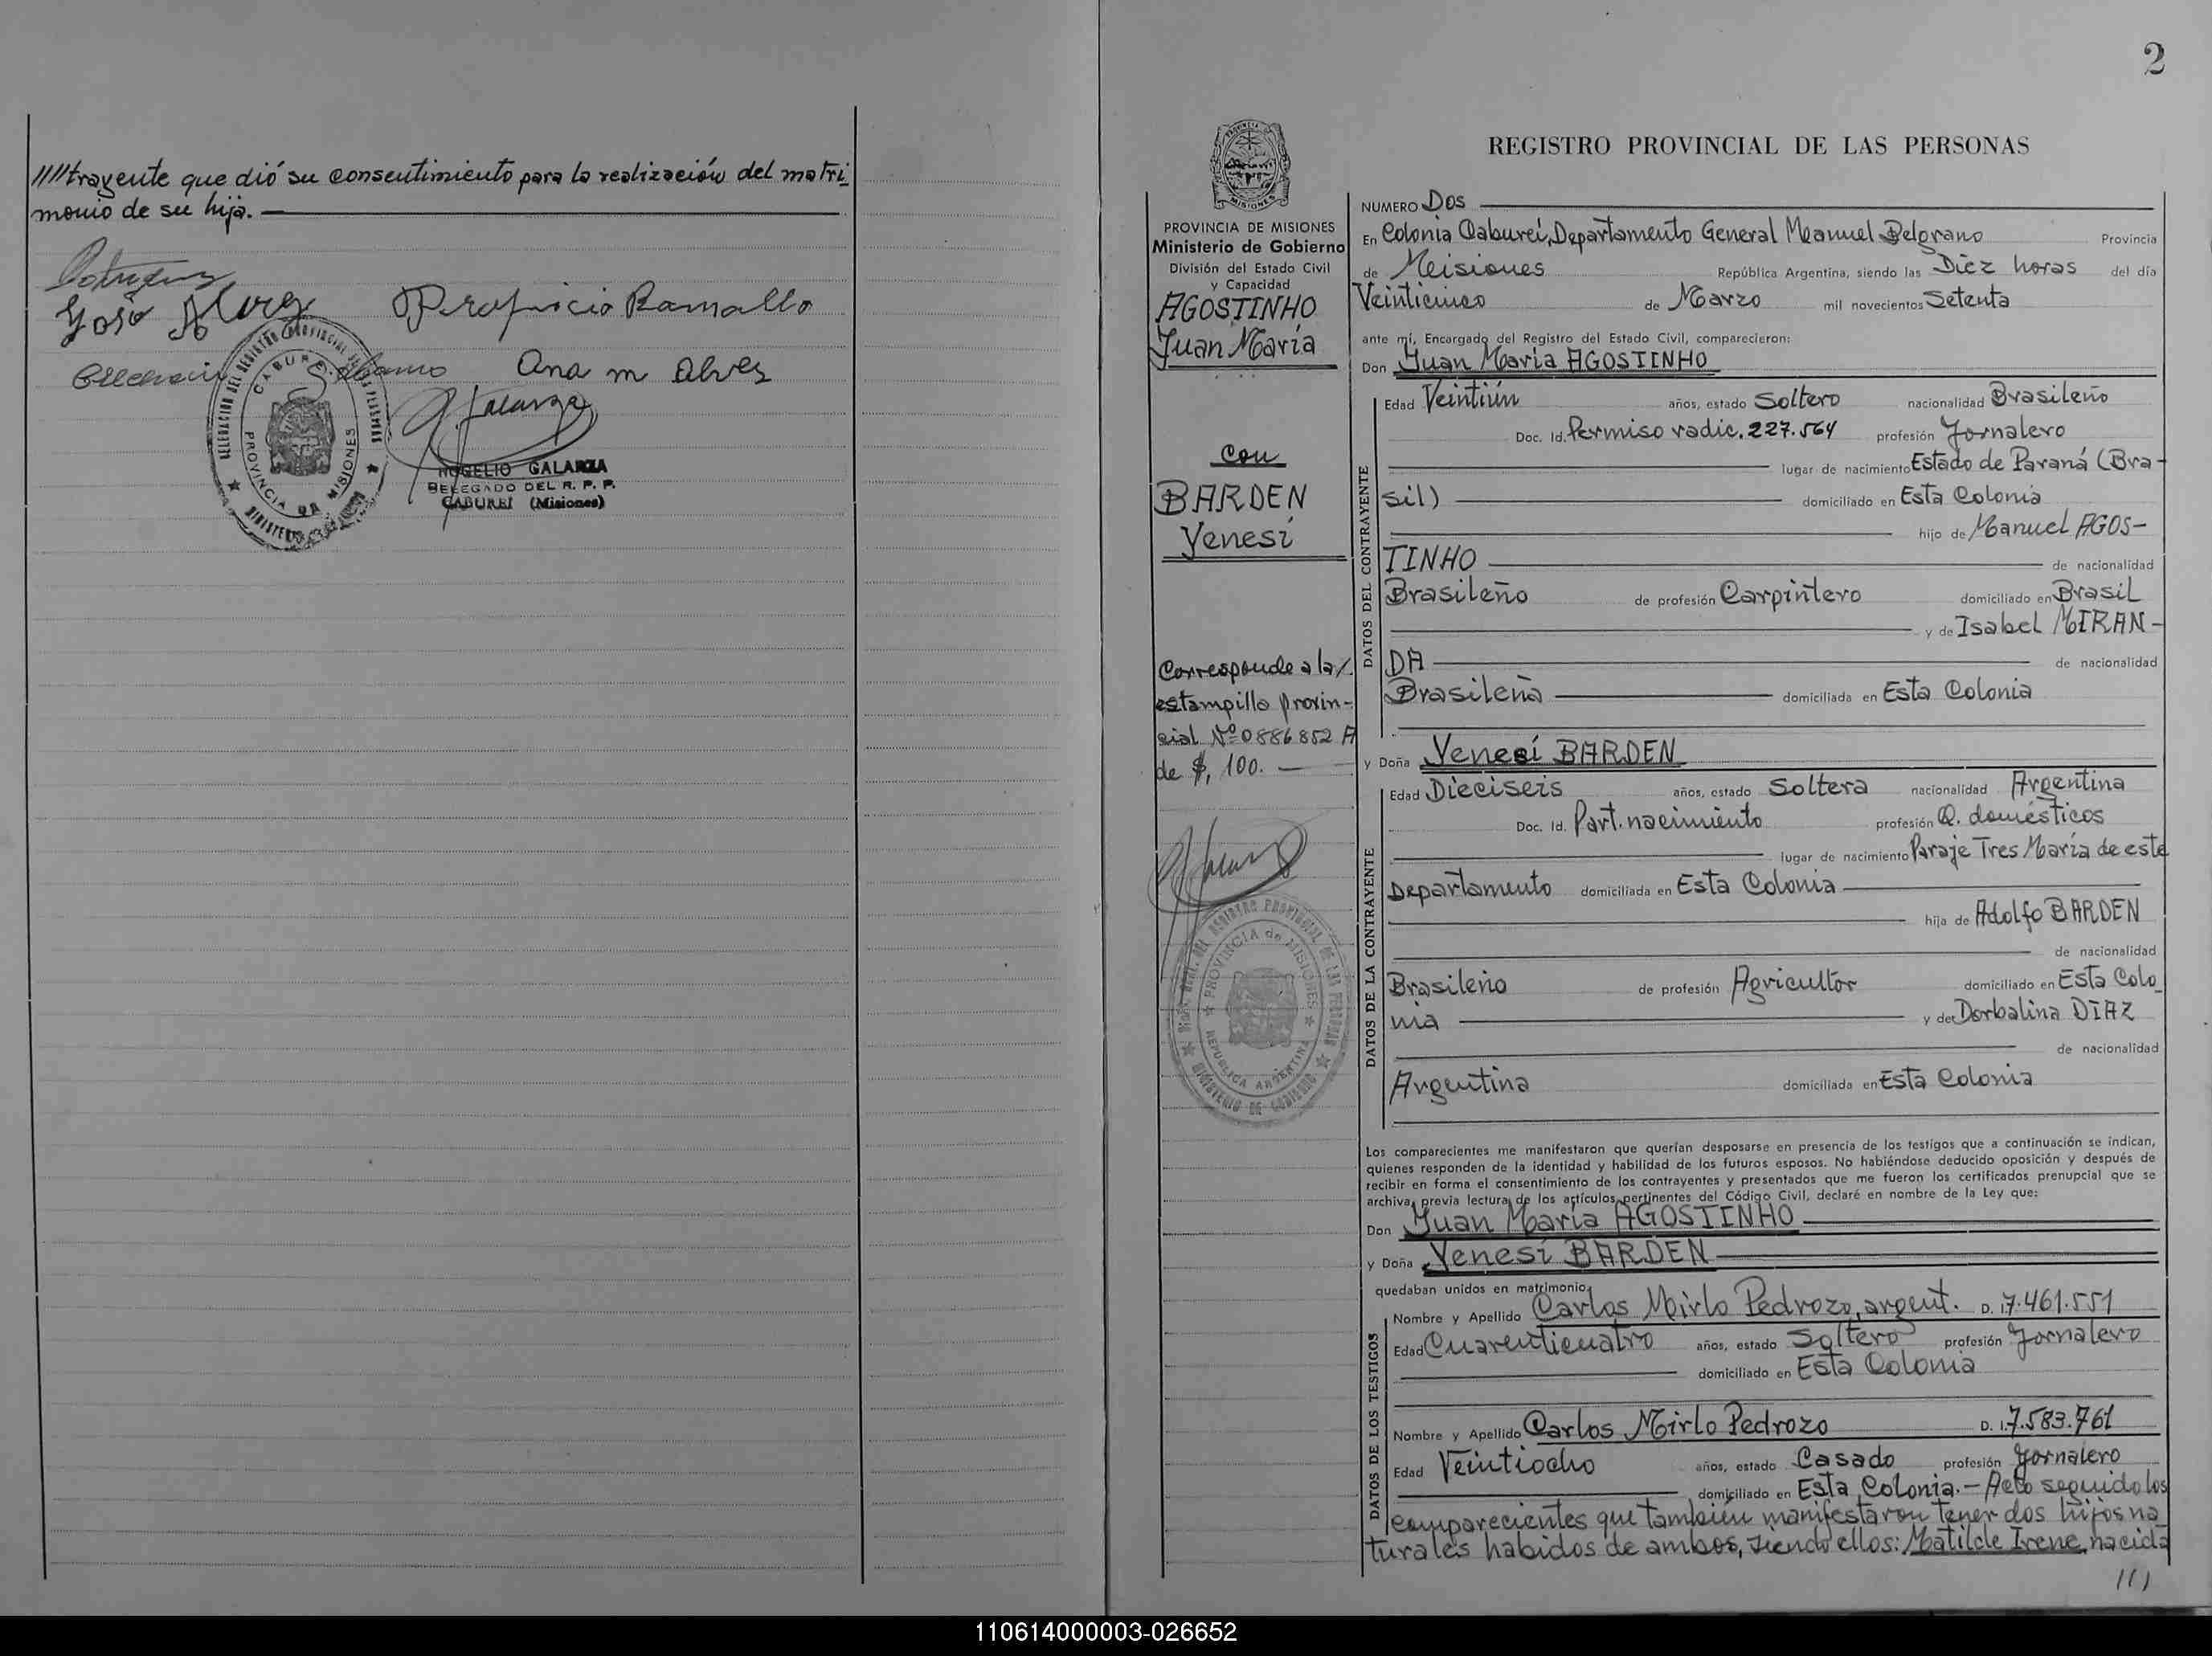 ////trayente que dió su consentimiento para la realización del matri_
monio de su hija.
José Alvez
Proficio Ramallo
Ana m Alves
ROGELIO GALARZA
DELEGADO DEL R. P. P.
CABUREI (Misiones)
2
PROVINCIA DE MISIONES
Ministerio de Gobierno
División del Estado Civil
y Capacidad
AGOSTINHO
Juan María
con
BARDEN
Yenesí
Corresponde a la/
estampilla provin-
cial Nº 0886852 A
de $, 100.
REGISTRO PROVINCIAL DE LAS PERSONAS
NUMERO Dos
En Colonia Caburei, Departamento General Manuel Belgrano Provincia
de Misiones República Argentina, siendo las Diez horas del día
Veinticinco de Marzo mil novecientos Setenta
ante mí, Encargado del Registro del Estado Civil, comparecieron:
Don Juan María AGOSTINHO
DATOS DEL CONTRAYENTE
Edad Veintiún años, estado Soltero nacionalidad Brasileño
Doc. Id. Permiso radic. 227.564 profesión Jornalero
lugar de nacimiento Estado de Paraná (Bra-
sil) domiciliado en Esta Colonia
hijo de Manuel AGOS-
TINHO de nacionalidad
Brasileño de profesión Carpintero domiciliado en Brasil
y de Isabel MIRAN-
DA de nacionalidad
Brasileña domiciliada en Esta Colonia
y Doña Yenesí BARDEN
DATOS DE LA CONTRAYENTE
Edad Dieciseis años, estado Soltera nacionalidad Argentina
Doc. Id. Part. nacimiento profesión Q. domésticos
lugar de nacimiento Paraje Tres María de este
Departamento domiciliada en Esta Colonia
hija de Adolfo BARDEN
de nacionalidad
Brasileño de profesión Agricultor domiciliado en Esta Colo_
nia y de Dorbalina DIAZ
de nacionalidad
Argentina domiciliada en Esta Colonia
Los comparecientes me manifestaron que querían desposarse en presencia de los testigos que a continuación se indican,
quienes responden de la identidad y habilidad de los futuros esposos. No habiéndose deducido oposición y después de
recibir en forma el consentimiento de los contrayentes y presentados que me fueron los certificados prenupcial que se
archiva, previa lectura de los artículos pertinentes del Código Civil, declaré en nombre de la Ley que:
Don Juan María AGOSTINHO
y Doña Yenesí BARDEN
quedaban unidos en matrimonio
DATOS DE LOS TESTIGOS
Nombre y Apellido Carlos Mirlo Pedrozo, argent. D. I. 7.461.551
Edad Cuarenticuatro años, estado Soltero profesión Jornalero
domiciliado en Esta Colonia
Nombre y Apellido Carlos Mirlo Pedrozo D. I. 7.583.761
Edad Veintiocho años, estado Casado profesión Jornalero
domiciliado en Esta Colonia.- Acto seguido los
comparecientes que también manifestaron tener dos hijos na_
turales habidos de ambos, siendo ellos: Matilde Irene, nacida
///
110614000003-026652